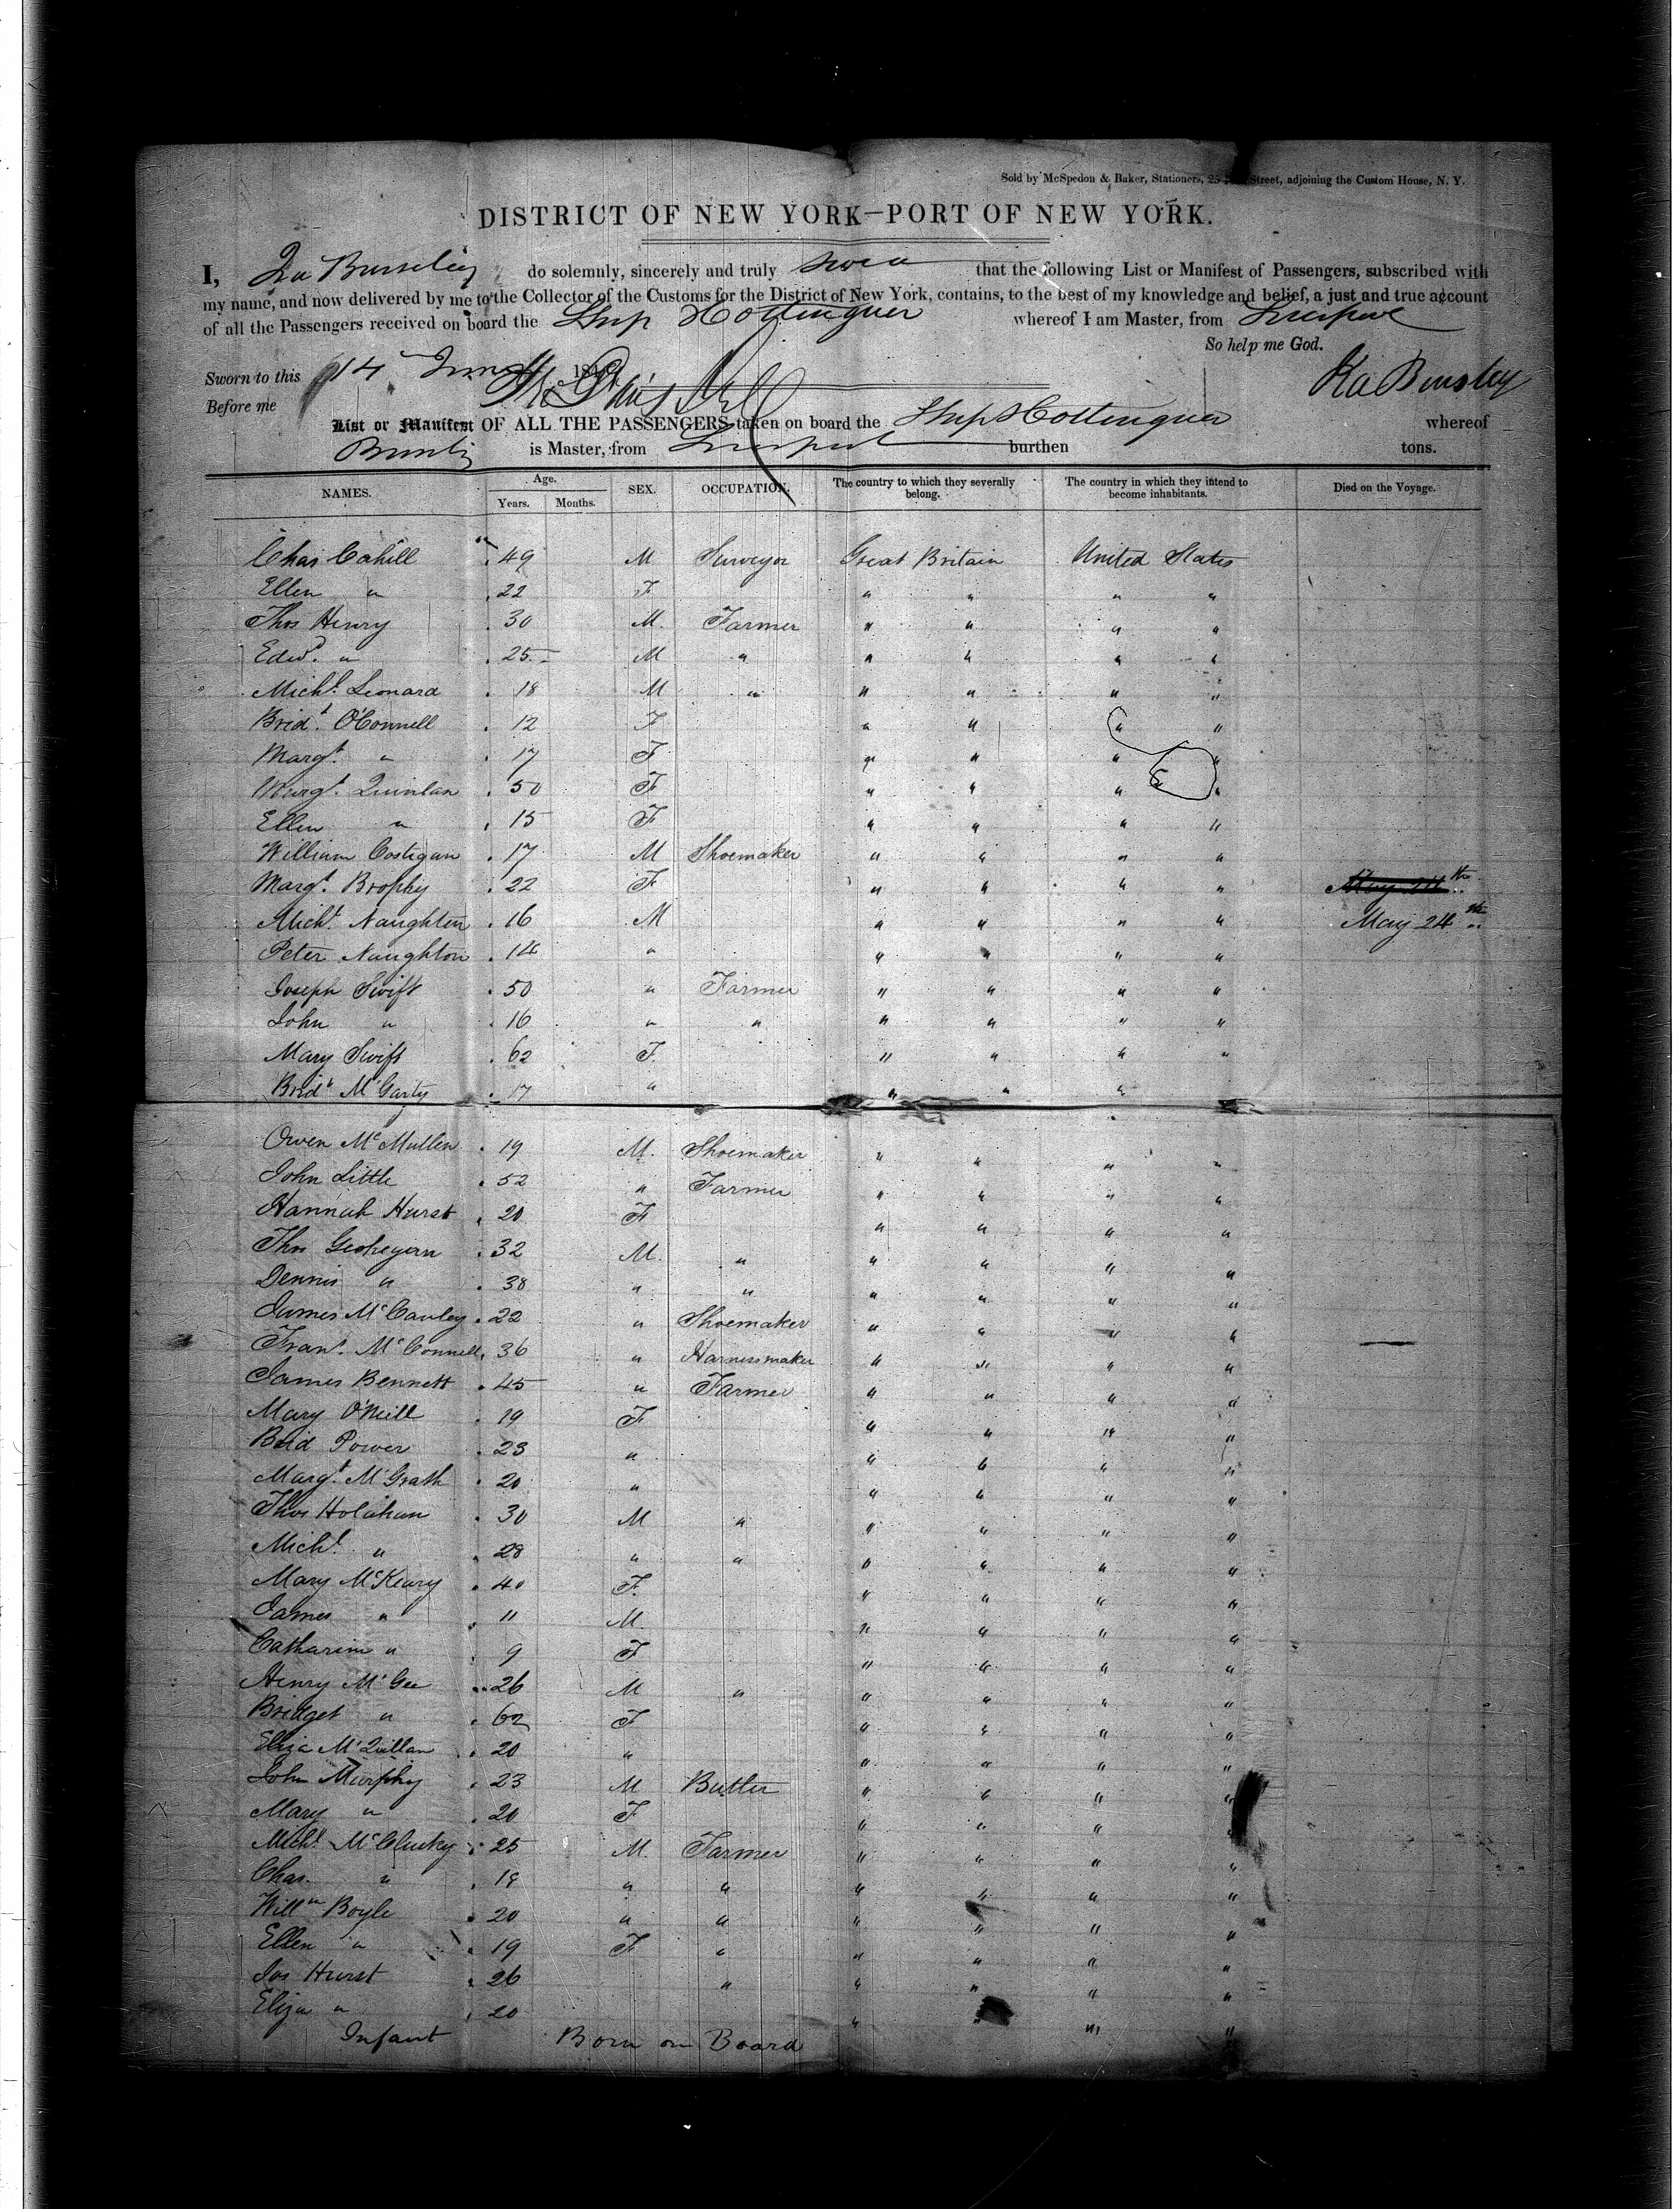 Sold by McSpedon & Baker, Stationers, 25 Street, adjoining the Custom House, N. Y.
DISTRICT OF NEW YORK—PORT OF NEW YORK.
I, Ira Bursley do solemnly, sincerely and truly swear that the following List or Manifest of Passengers, subscribed with
my name, and now delivered by me to the Collector of the Customs for the District of New York, contains, to the best of my knowledge and belief, a just and true account
of all the Passengers received on board the Ship Hottinguer whereof I am Master, from Liverpool
So help me God.
Sworn to this 14 June 184
Ira Bursley
Before me
List or Manifest OF ALL THE PASSENGERS taken on board the Ship Hottinguer whereof
Bursley is Master, from Liverpool burthen tons.
NAMES. Age. Years. Months. SEX. OCCUPATION. The country to which they severally belong. The country in which they intend to become inhabitants. Died on the Voyage.
Chas Cahill 49 M Surveyor Great Britain United States
Ellen " 22 F " " " "
Thos Henry 30 M. Farmer " " " "
Edwd. " 25 M " " " " "
Michl. Leonard 18 M " " " " "
Bridt. O'Connell 12 F " " " "
Margt. " 17 F " " " "
Margt. Quinlan 50 F " " " "
Ellen " 15 F " " " "
William Costigan 17 M Shoemaker " " " "
Margt. Brophy 22 F " " " " May 24th
Michl. Naughton 16 M " " " " May 24th
Peter Naughton 14 " " " " "
Joseph Swift 50 " Farmer " " " "
John " 16 " " " " " "
Mary Swift 62 F. " " " "
Bridt McGarty 17 " " " "
Owen McMullen 19 M. Shoemaker " " " "
John Little 52 " Farmer " " " "
Hannah Hurst 20 F " " " "
Thos Geohegan 32 M. " " " " "
Dennis " 38 " " " " " "
James McCauley 22 " Shoemaker " " " "
Frans. McConnell 36 " Harnessmaker " " " "
James Bennett 45 " Farmer " " " "
Mary O'Neill 19 F " " " "
Brid Power 23 " " " " "
Margt. McGrath 20 " " " " "
Thos Holahan 30 M " " " " "
Michl. " 28 " " " " " "
Mary McKeary 40 F. " " " "
James " 11 M. " " " "
Catharine " 9 F " " " "
Henry McGee 26 M " " " " "
Bridget " 62 F " " " "
Eliza McQuillan 20 " " " " "
John Murphy 23 M Butler " " " "
Mary " 20 F " " " "
Michl. McClusky 25 M. Farmer " " " "
Chas. " 18 " " " " " "
Willm Boyle 20 " " " " " "
Ellen " 19 F " " " " "
Jas Hurst 26 " " " " "
Eliza " 20 " " " "
Infant Born on Board